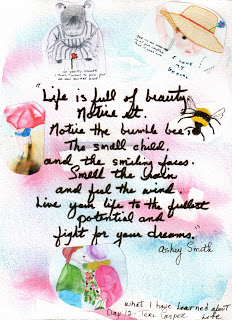 "Life is full of beauty.
Notice it.
Notice the bumble bee,
The small child,
and the smiling faces.
Smell the rain
and feel the wind.
Live your life to the fullest
potential and
fight for your dreams."
Ashley Smith
What I have learned about
Day 12 - Teri Casper Life